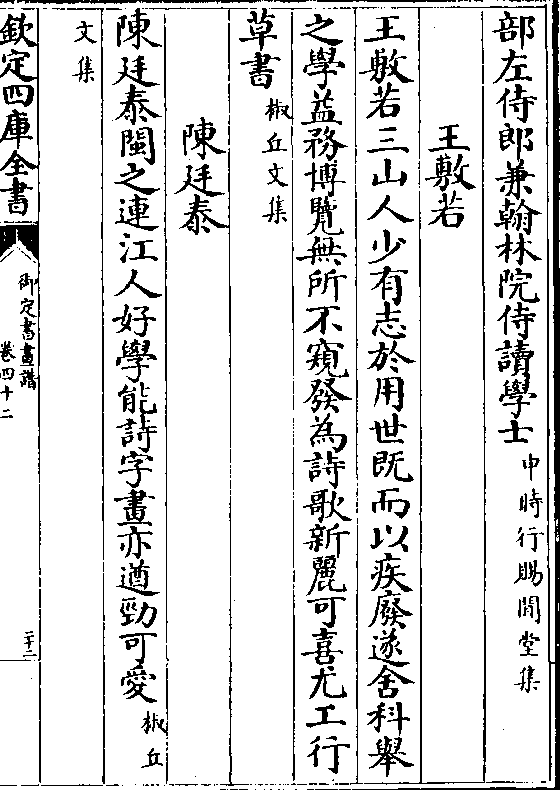 部左侍郎兼翰林院侍讀學士申時行賜閒堂集
王敷若
王敷若三山人少有志於用世既而以疾廢遂舍科舉
之學益務博覽無所不窺發為詩歌新麗可喜尤工行
草書椒丘文集
陳廷泰
陳廷泰閩之連江人好學能詩字畫亦遒勁可愛椒丘
文集
欽定四庫全書
御定書畫譜
卷四十二
二十二